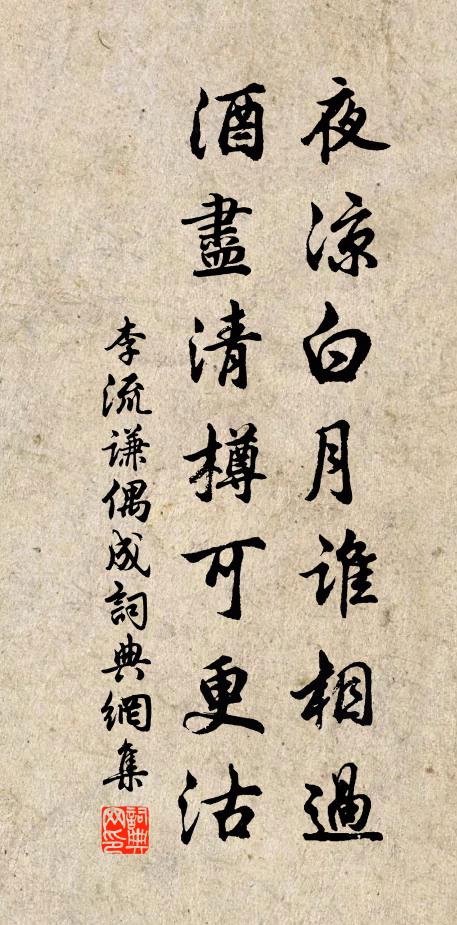 夜涼白月誰相過
酒盡清樽可更沽
李流謙偶成詞典網集
詞典網印